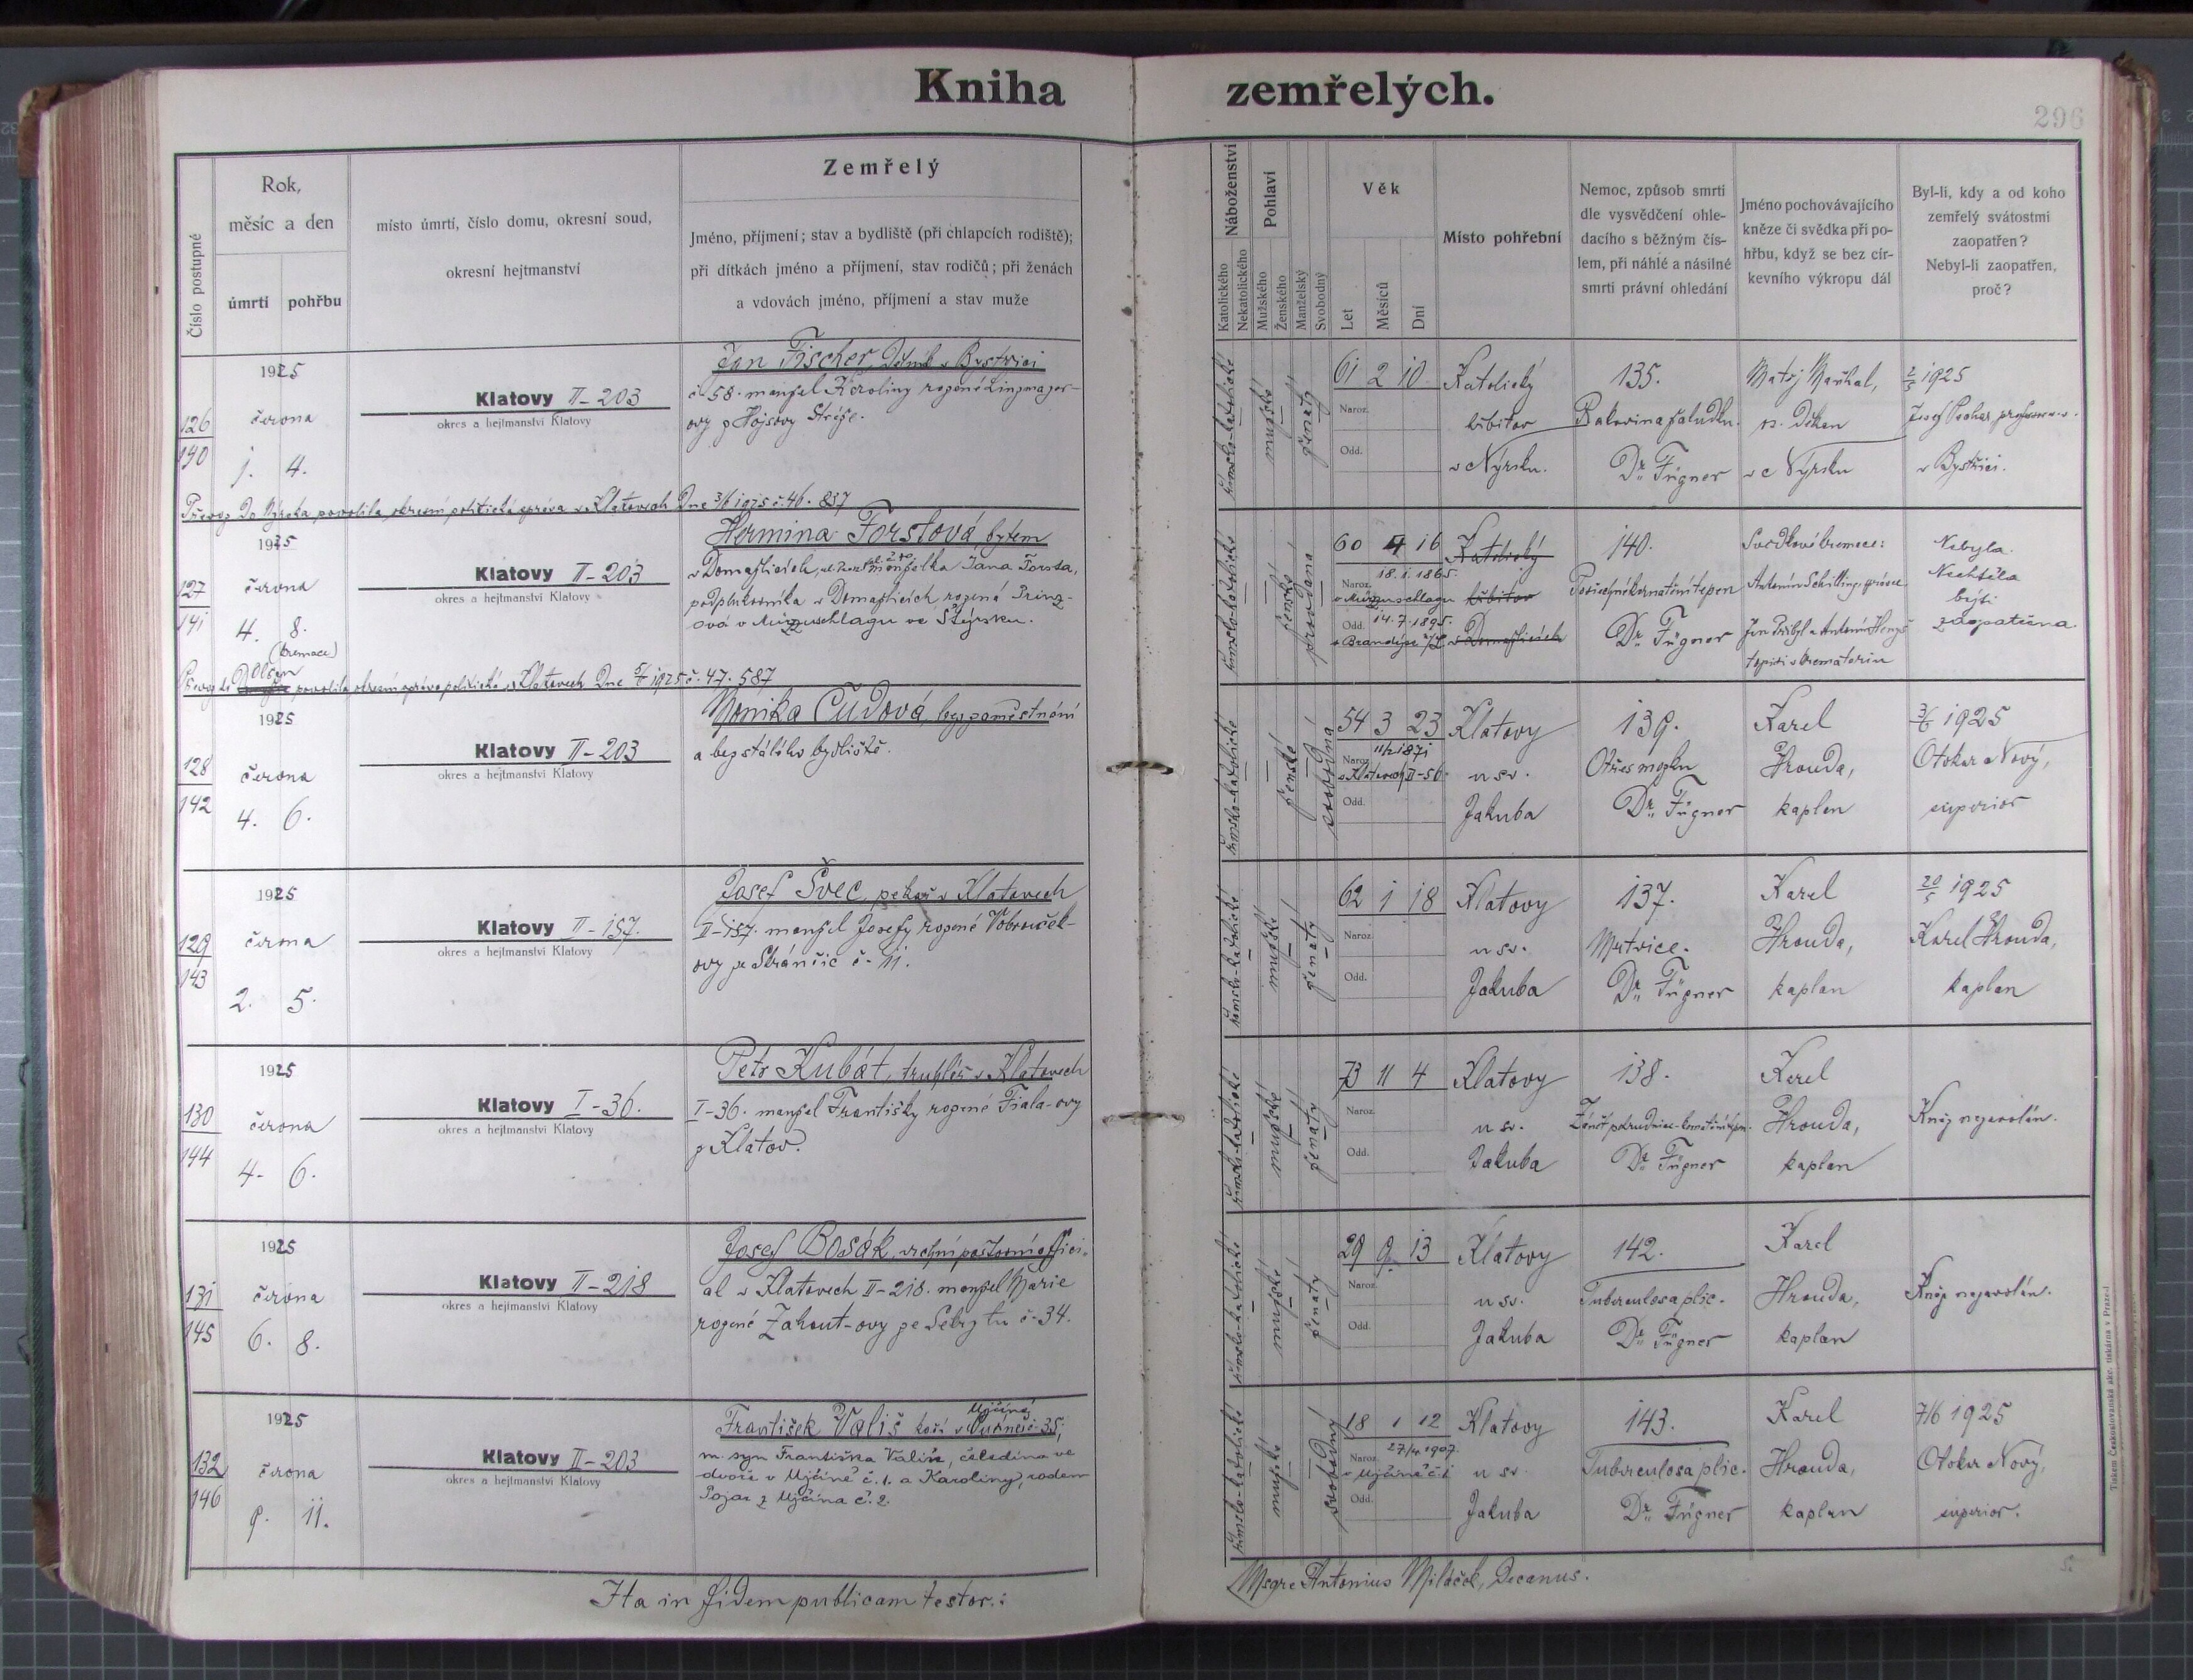 Kniha zemřelých.
296
Číslo postupné
Rok,
měsíc a den
úmrtí
pohřbu
místo úmrtí, číslo domu, okresní soud,
okresní hejtmanství
Zemřelý
Jméno, příjmení; stav a bydliště (při chlapcích rodiště);
při dítkách jméno a příjmení, stav rodičů; při ženách
a vdovách jméno, příjmení a stav muže
Náboženství
Katolického
Nekatolického
Pohlaví
Mužského
Ženského
Manželský
Svobodný
Věk
Let
Měsíců
Dní
Místo pohřební
Nemoc, způsob smrti
dle vysvědčení ohle-
dacího s běžným čís-
lem, při náhlé a násilné
smrti právní ohledání
Jméno pochovávajícího
kněze či svědka při po-
hřbu, když se bez cír-
kevního výkropu dál
Byl-li, kdy a od koho
zemřelý svátostmi
zaopatřen?
Nebyl-li zaopatřen,
proč?
126
190
1925
června
1. 4.
Klatovy II-203
okres a hejtmanství Klatovy
Jan Fischer, dělník v Bystřici
č. 58. manžel Karoliny rozené Lingmajer-
ovy z Hojsovy Stráže.
římsko-katolické
mužské
ženatý
61 2 10
Naroz.
Odd.
Katolický
hřbitov
v Nýrsku.
135.
Rakovina žaludku.
Dr. Fügner
Matěj Maršal,
n. Děkan
v Nýrsku
2/5 1925
Josef Pechar, professor
v Bystřici.
Převoz do Nýrska povolila okresní politická správa v Klatovech dne 3/6 1925 č. 46.837
127
141
1925
června
4. 8.
(kremace)
Klatovy II-203
okres a hejtmanství Klatovy
Hermina Forstová, bytem
v Domažlicích, manželka Jana Forsta,
podplukovníka v Domažlicích rozená Prinz-
ová v Mürzzuschlagu ve Štýrsku.
římsko-katolické
ženské
provdaná
60 4 16
Naroz. 18. 1. 1865.
v Mürzzuschlagu
Odd. 14. 7. 1895.
v Brandýse n/L.
Katolický
hřbitov
v Domažlicích
140.
Dr. Fügner
Svědkové kremace:
Antonín Schilling, správce
Jan Přibyl a Antonín
topiči v krematoriu
Nebyla.
Nechtěla
býti
zaopatřena
Převoz do Plzen povolila okresní správa politická v Klatovech dne 5/6 1925 č. 47.587
128
142
1925
června
4. 6.
Klatovy II-203
okres a hejtmanství Klatovy
Monika Čudová, bez zaměstnání
a bez stálého bydliště.
římsko-katolické
ženské
svobodná
54 3 23
Naroz. 11/2 1871
v Klatovech II-56.
Odd.
Klatovy
u sv.
Jakuba
139.
Otřes mozku
Dr. Fügner
Karel
Hrouda,
kaplan
3/6 1925
Otokar Nový,
superior
129
143
1925
června
2. 5.
Klatovy II-157.
okres a hejtmanství Klatovy
Josef Švec, pekař v Klatovech
II-157. manžel Josefy rozené Vobrouček-
ovy ze Stránčic č. 11.
římsko-katolické
mužské
ženatý
62 1 18
Naroz.
Odd.
Klatovy
u sv.
Jakuba
137.
Mrtvice.
Dr. Fügner
Karel
Hrouda,
kaplan
20/5 1925
Karel Hrouda,
kaplan
130
144
1925
června
4. 6.
Klatovy I-36.
okres a hejtmanství Klatovy
Petr Kubát, truhlář v Klatovech
I-36. manžel Františky rozené Fiala-ovy
z Klatov.
římsko-katolické
mužské
ženatý
73 11 4
Naroz.
Odd.
Klatovy
u sv.
Jakuba
138.
Dr. Fügner
Karel
Hrouda,
kaplan
Kněz nezavolán.
131
145
1925
června
6. 8.
Klatovy II-218
okres a hejtmanství Klatovy
Josef Bosák, vrchní poštovní offici-
al v Klatovech II-218. manžel Marie
rozené Zahout-ovy ze č. 34.
římsko-katolické
mužské
ženatý
29 9 13
Naroz.
Odd.
Klatovy
u sv.
Jakuba
142.
Tuberculosa plic.
Dr. Fügner
Karel
Hrouda,
kaplan
Kněz nezavolán.
132
146
1925
června
9. 11.
Klatovy II-203
okres a hejtmanství Klatovy
Újčíně
František Vališ kočí v č. 35,
m. syn Františka Vališe, čeledína ve
dvoře v Újčíně č. 1. a Karoliny, rodem
Pojar z Újčína č. 2.
římsko-katolické
mužské
svobodný
18 1 12
Naroz. 27/4. 1907.
v Újčíně č. 1
Odd.
Klatovy
u sv.
Jakuba
143.
Tuberculosa plic.
Dr. Fügner
Karel
Hrouda,
kaplan
7/6 1925
Otokar Nový,
superior.
Ita in fidem publicam testor.:
Msgre Antonius Miláček, Decanus.
Tiskem Českoslovanská akc. tiskárna v Praze-I